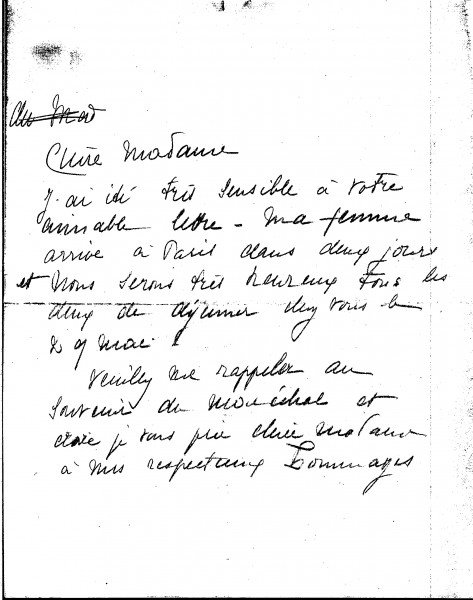 Chère Madame
J'ai été très sensible à votre
aimable lettre - Ma femme
arrive à Paris dans deux jours
et nous serons très heureux tous les
deux de déjeuner chez vous le
29 mai.
Veuillez me rappeler au
souvenir du Maréchal et
croire je vous prie chère Madame
à mes respectueux hommages